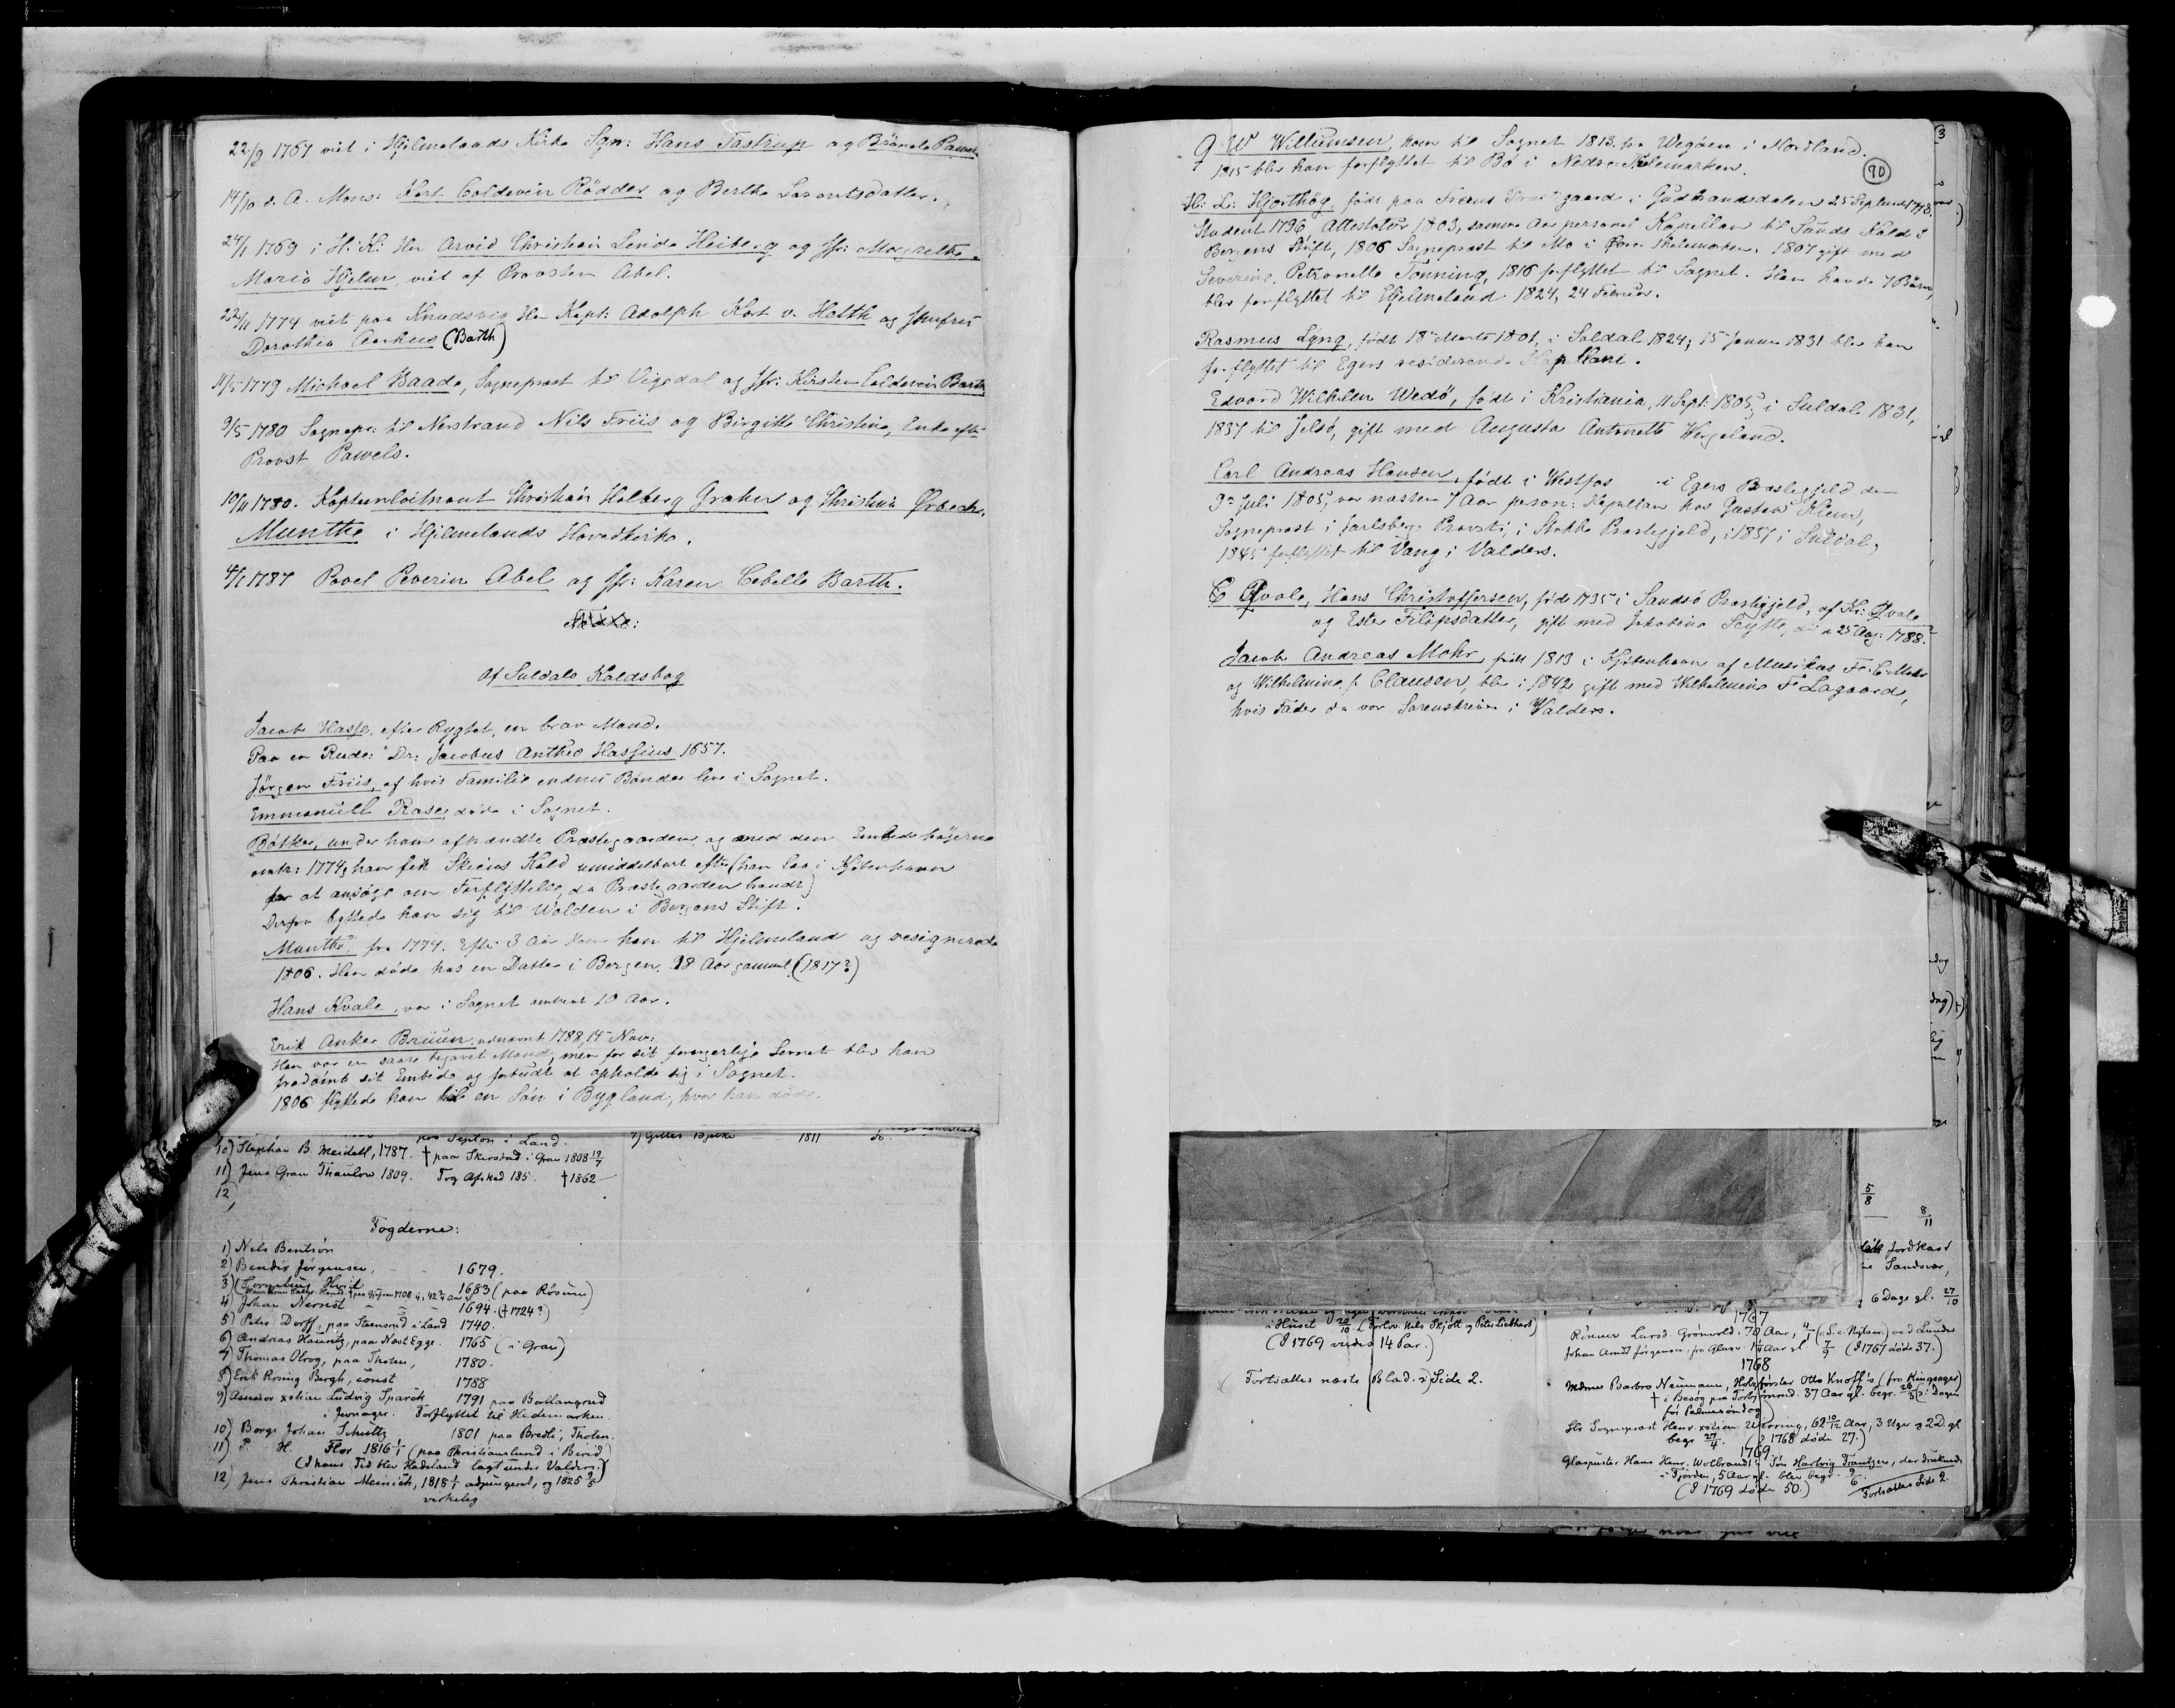 22/9 1767 viet i Hjelmelands Kirke Sgn: Hans Tastrup og Brønele Pawels
14/10 s. A. Mons: Kort Coldevin Rödder og Berthe Larentsdatter.
24/1 1769 i H: K: Her Arvid Christian Linde Heiberg og Jfr: Margrethe
Maria Hjelm, viet af Provsten Abel.
22/11 1774 viet paa Knudsvig Her Kapt: Adolph Kort v. Hetth og Jomfru
Dorothea Aarhus (Barth)
11/5 1779 Michael Baade, Sogneprest til Vigedal og Jfr: Kirsten Coldevin Barth
9/5 1780 Sognepr: til Nerstrand Nils Friis og Birgitte Christine, Enke efter
Provst Pawels.
10/11 1780. Kapteinloitnant Christian Holberg Graher og Christina Ørbech.
Munthe i Hjelmelands Hovedkirke.
4/1 1787 Povel Peverin Abel og Jfr: Karen Cebelle Barth.
af Suldals Kaldsbog
Jacob Hasse, efter Rygtet, en brav Mand.
Paa en Rude: "Dr: Jacobus Antheo Hassius 1657.
Jørgen Friis, af hvis Familie endnu Bønder leve i Sognet.
Emmanuell Rase, døde i Sognet.
Bøtker, under ham afbrændte Præstegaarden og med den Embedsbøgerne
omtr: 1774; han fik Skeiens Kald umiddelbart efter (han laa i Kjøbenhavn
for at ansøge om Forflyttelse, da Præstegaarden brændt)
Derfra byttede han sig til Wolden i Bergens Stift.
Munthe, fra 1774. Efter 3 Aar kom han til Hjelmeland og resignerede
1806. Han døde hos en Datter i Bergen, 98 Aar gammel (1817?)
Hans Kvale, var i Sognet omtrent 10 Aar.
Erik Anker Bruun, udnævnt 1788, 14 Nov:
Han var en saare begavet Mand, men for sit forargerlige Levnet blev han
fradømt sit Embede og forbudt at opholde sig i Sognet.
1806 flyttede han til en Søn i Bygland, hvor han døde.
paa Septon i Land. 7) Gilles Bjelke 1811 do.
10) Stephan B. Meidell, 1787. † paa Skirstad i Gran 1808 19/7
11) Jens Gran Thaulow 1809. Tog Afsked 185 . † 1862
12,
Fogderne:
1) Nels Bentsøn
2) Bendix Jørgensen, 1679.
3) Cornelius Hvid 1683 (paa Røsum)
4) Johan Nernst 1694. († 1724?)
5) Peter Dorff, paa Steensrud i Land 1740.
6) Andreas Hauritz, paa Næst Egge. 1765 (i Gran)
7) Thomas Olrog, paa Thoten, 1780.
8) Erik Rosing Bergh, const 1788
9) Assessor xstian Ludvig Sparch 1791 paa Ballangrud
i Jevnager. Forflyttet til Hedemarken.
10) Borge Johan Schultz 1801 paa Bredli, Thoten.
11) P. H. Flor 1816 1/1 (paa Christianslund i Birid)
(I hans Tid blev Hadeland lagt under Valders.)
12) Jens Christian Meinich, 1818 1/1 adjungeret, og 1825 9/5
virkelig
J W Willumsen, kom til Sognet 1813 fra Wegøen i Nordland.
1815 blev han forflyttet til Bø i Nedre Thelemarken.
70
H: L: Hjorthøg, født paa Frons Præstgaard i Gudbrandsdalen 25 September 1773.
Student 1796 Attestatus 1803, samme Aar personel Kapellan til Sunds Kald i
Bergens Stift, 1806 Sogneprast til Mo i Øvre Thelemarken. 1807 gift med
Severine Petronelle Tønning, 1816 forflyttet til Sognet. Han havde 7 Børn,
blev forflyttet til Hjelmeland 1824, 24 Februar.
Rasmus Lyng, født 18de Marts 1801, i Soldal 1824; 15 Januar 1831 blev han
forflyttet til Egers residerende Kapellani.
Edvard Wilhelm Wedø, født i Kristiania, 11 Sept: 1805, i Suldal 1831,
1837 til Jelsø, gift med Augusta Antonette Wergeland.
Carl Andreas Hansen, født i Westfos i Egers Præstegjeld den
9de Juli 1805, var næsten 7 Aar person: Kapellan hos Gustav Klem,
Sogneprast i Jarlsbergs Provsti, i Stokke Prastegjeld, i 1837 i Suldal,
1845 forflyttet til Vang i Valders.
Qvale, Hans Christoffersen, føde 1735 i Sandsø Prastegjeld, af Kr: Qvale
og Ester Filipsdatter, gift med Jakobine Scytte, død 25 Aug: 1788.
Jacob Andreas Mohr, født 1813 i Kjøbenhavn af Musikus Fr: C Mohr
og Wilhelmine f. Clausen, blev i 1842 gift med Wilhelmine F. Lagaard,
hvis Fader da var Sorenskriver i Valders.
5/8
8/11
Jordkast
Sandsvær,
6 Dage gl. 27/10
i Huset 20/10. (Forlov. Nils Skjøtt og Peter Liebhart)
(I 1769 viedes 14 Par.)
Fortsættes næste Blad. Side 2.
1767
Rønner Larsd. Grønvold. 70 Aar, 4/1 ved Lunder
Johan Arndt Jørgensen, fra Glasv. Aar gl 7/9 (I 1767 døde 37.)
1768
Mdme Barbro Neumann, Holzförster Otto Knoff's (fra Ringsager)
† i Besøg paa Torbjørnrud. 37 Aar gl. begr. 26/3 Dagen
før Palmesøndag
Hr Sogneprast Henr. xstian Worning, 62 10/12 Aar, 3 Uger og 2 D. gl
begr 27/4. (I 1768 døde 27.)
1769
Glaspuster Hans Henr. Wolbrandt's Søn Hartvig Frantzen, der druknede
i Fjorden, 5 Aar gl. blev begr. 9/6
(I 1769 døde 50.)
Fortsættes Side 2.